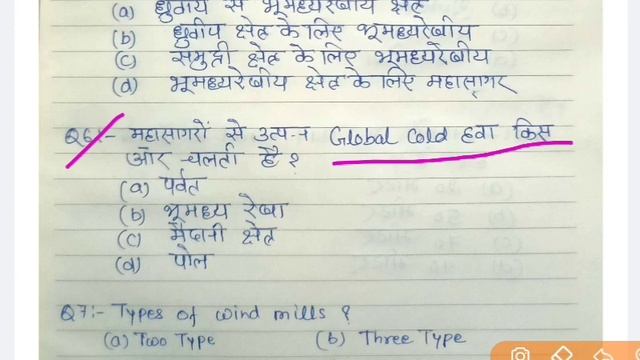 (a) ध्रुवीय से भूमध्यरेखीय क्षेत्र
(b) ध्रुवीय क्षेत्र के लिए भूमध्यरेखीय
(c) समुद्री क्षेत्र के लिए भूमध्यरेखीय
(d) भूमध्यरेखीय क्षेत्र के लिए महासागर
Q6:- महासागरों से उत्पन्न Global Cold हवा किस
ओर चलती है ?
(a) पर्वत
(b) भूमध्य रेखा
(c) मैदानी क्षेत्र
(d) पोल
Q7:- Types of wind mills ?
(a) Two Type (b) Three Type